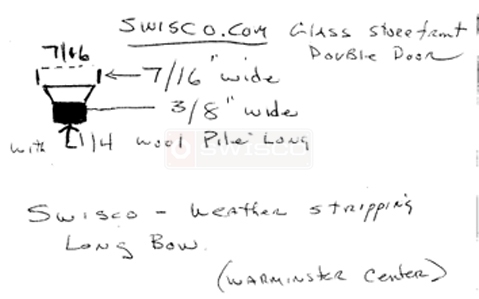 SWISCO.COM Glass storefront
Double Door
7/16
7/16" wide
3/8" wide
with 1/4 wool Pile Long
SWISCO
Swisco - Weather stripping
Long Bow.
(WARMINSTER CENTER)